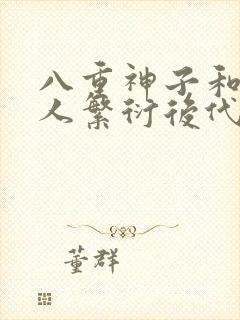 八重神子和
人繁衍後代
董群